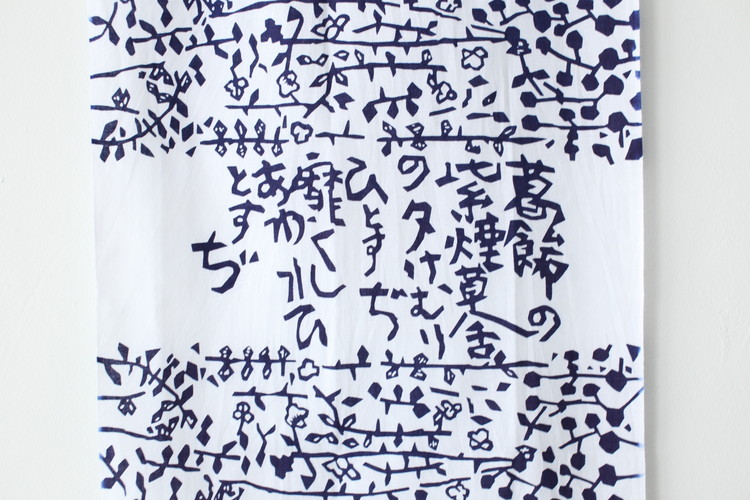 葛飾の
紫煙草舎
の夕けむり
ひとすぢ
靡く
あはれひ
とすぢ